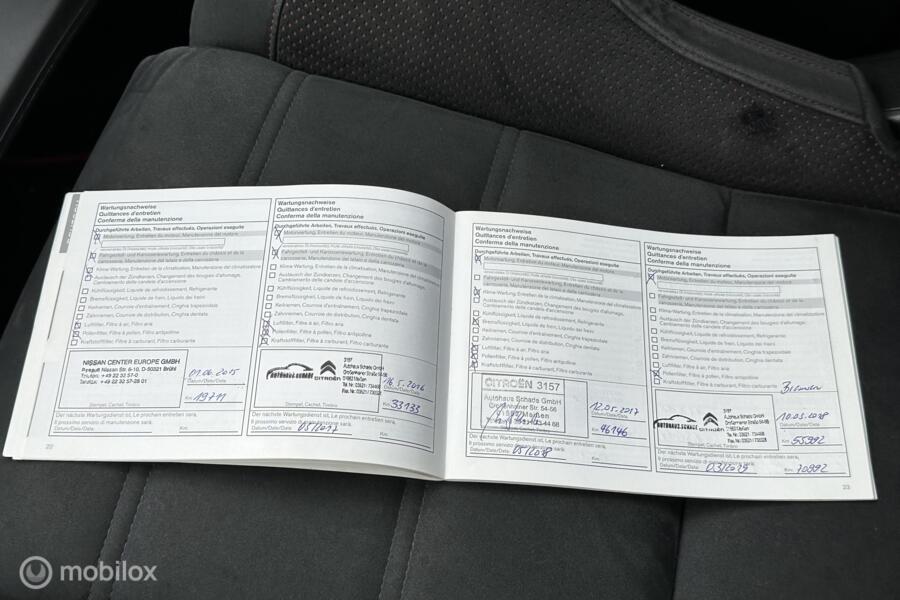 Wartungsnachweise
Quittances d'entretien
Conferma della manutenzione
Durchgeführte Arbeiten, Travaux effectués, Operazioni eseguite
Motorwartung, Entretien du moteur, Manutenzione del motore
Fahrgestell- und Karosseriewartung, Entretien du châssis et de la
carrosserie, Manutenzione del telaio e della carrozzeria
Klima-Wartung, Entretien de la climatisation, Manutenzione del climatizzatore
Austausch der Zündkerzen, Changement des bougies d'allumage,
Cambiamento delle candele d'accensione
Kühlflüssigkeit, Liquide de refroidissement, Refrigerante
Bremsflüssigkeit, Liquide de frein, Liquido dei freni
Keilriemen, Courroie d'entraînement, Cinghia trapezoidale
Zahnriemen, Courroie de distribution, Cinghia dentata
Luftfilter, Filtre à air, Filtro aria
Pollenfilter, Filtre à pollen, Filtro antipolline
Kraftstofffilter, Filtre à carburant, Filtro carburante
NISSAN CENTER EUROPE GMBH
Renault Nissan Str. 6-10, D-50321 Brühl
Telefon: +49 22 32 57-0
Telefax: +49 22 32 57-28 01
01.06.2015
Datum/Date/Data
19711
Km
Stempel, Cachet, Timbro
Der nächste Wartungsdienst ist, Le prochain entretien sera,
Il prossimo servizio di manutenzione sarà:
Datum/Date/Data
Km
22
Wartungsnachweise
Quittances d'entretien
Conferma della manutenzione
Durchgeführte Arbeiten, Travaux effectués, Operazioni eseguite
Motorwartung, Entretien du moteur, Manutenzione del motore
Fahrgestell- und Karosseriewartung, Entretien du châssis et de la
carrosserie, Manutenzione del telaio e della carrozzeria
Klima-Wartung, Entretien de la climatisation, Manutenzione del climatizzatore
Austausch der Zündkerzen, Changement des bougies d'allumage,
Cambiamento delle candele d'accensione
Kühlflüssigkeit, Liquide de refroidissement, Refrigerante
Bremsflüssigkeit, Liquide de frein, Liquido dei freni
Keilriemen, Courroie d'entraînement, Cinghia trapezoidale
Zahnriemen, Courroie de distribution, Cinghia dentata
Luftfilter, Filtre à air, Filtro aria
Pollenfilter, Filtre à pollen, Filtro antipolline
Kraftstofffilter, Filtre à carburant, Filtro carburante
AUTOHAUS SCHADS CITROËN
3157
Autohaus Schads GmbH
Großenhainer Straße 54-56
Meißen
16.5.2016
Datum/Date/Data
33133
Km
Stempel, Cachet, Timbro
Der nächste Wartungsdienst ist, Le prochain entretien sera,
Il prossimo servizio di manutenzione sarà:
Datum/Date/Data 05/2017
Km
Wartungsnachweise
Quittances d'entretien
Conferma della manutenzione
Durchgeführte Arbeiten, Travaux effectués, Operazioni eseguite
Motorwartung, Entretien du moteur, Manutenzione del motore
Fahrgestell- und Karosseriewartung, Entretien du châssis et de la
carrosserie, Manutenzione del telaio e della carrozzeria
Klima-Wartung, Entretien de la climatisation, Manutenzione del climatizzatore
Austausch der Zündkerzen, Changement des bougies d'allumage,
Cambiamento delle candele d'accensione
Kühlflüssigkeit, Liquide de refroidissement, Refrigerante
Bremsflüssigkeit, Liquide de frein, Liquido dei freni
Keilriemen, Courroie d'entraînement, Cinghia trapezoidale
Zahnriemen, Courroie de distribution, Cinghia dentata
Luftfilter, Filtre à air, Filtro aria
Pollenfilter, Filtre à pollen, Filtro antipolline
Kraftstofffilter, Filtre à carburant, Filtro carburante
CITROËN 3157
Autohaus Schads GmbH
Großenhainer Str. 54-56
Meißen
12.05.2017
Datum/Date/Data
46146
Km
Der nächste Wartungsdienst ist, Le prochain entretien sera,
Il prossimo servizio di manutenzione sarà:
Datum/Date/Data 05/2018
Km
Wartungsnachweise
Quittances d'entretien
Conferma della manutenzione
Durchgeführte Arbeiten, Travaux effectués, Operazioni eseguite
Motorwartung, Entretien du moteur, Manutenzione del motore
Fahrgestell- und Karosseriewartung, Entretien du châssis et de la
carrosserie, Manutenzione del telaio e della carrozzeria
Klima-Wartung, Entretien de la climatisation, Manutenzione del climatizzatore
Austausch der Zündkerzen, Changement des bougies d'allumage,
Cambiamento delle candele d'accensione
Kühlflüssigkeit, Liquide de refroidissement, Refrigerante
Bremsflüssigkeit, Liquide de frein, Liquido dei freni
Keilriemen, Courroie d'entraînement, Cinghia trapezoidale
Zahnriemen, Courroie de distribution, Cinghia dentata
Luftfilter, Filtre à air, Filtro aria
Pollenfilter, Filtre à pollen, Filtro antipolline
Kraftstofffilter, Filtre à carburant, Filtro carburante
AUTOHAUS SCHADS CITROËN
3157
Autohaus Schads GmbH
Großenhainer Straße 54-56
Meißen
Datum/Date/Data
55992
Km
Stempel, Cachet, Timbro
Der nächste Wartungsdienst ist, Le prochain entretien sera,
Il prossimo servizio di manutenzione sarà:
Datum/Date/Data 03/2019
Km 70992
23
mobilox